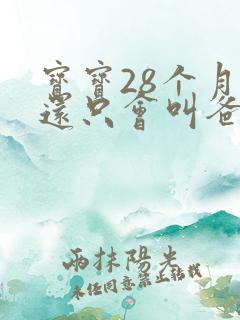 寶寶28个月
還只會叫爸
兩抹陽光
未经同意禁止转载